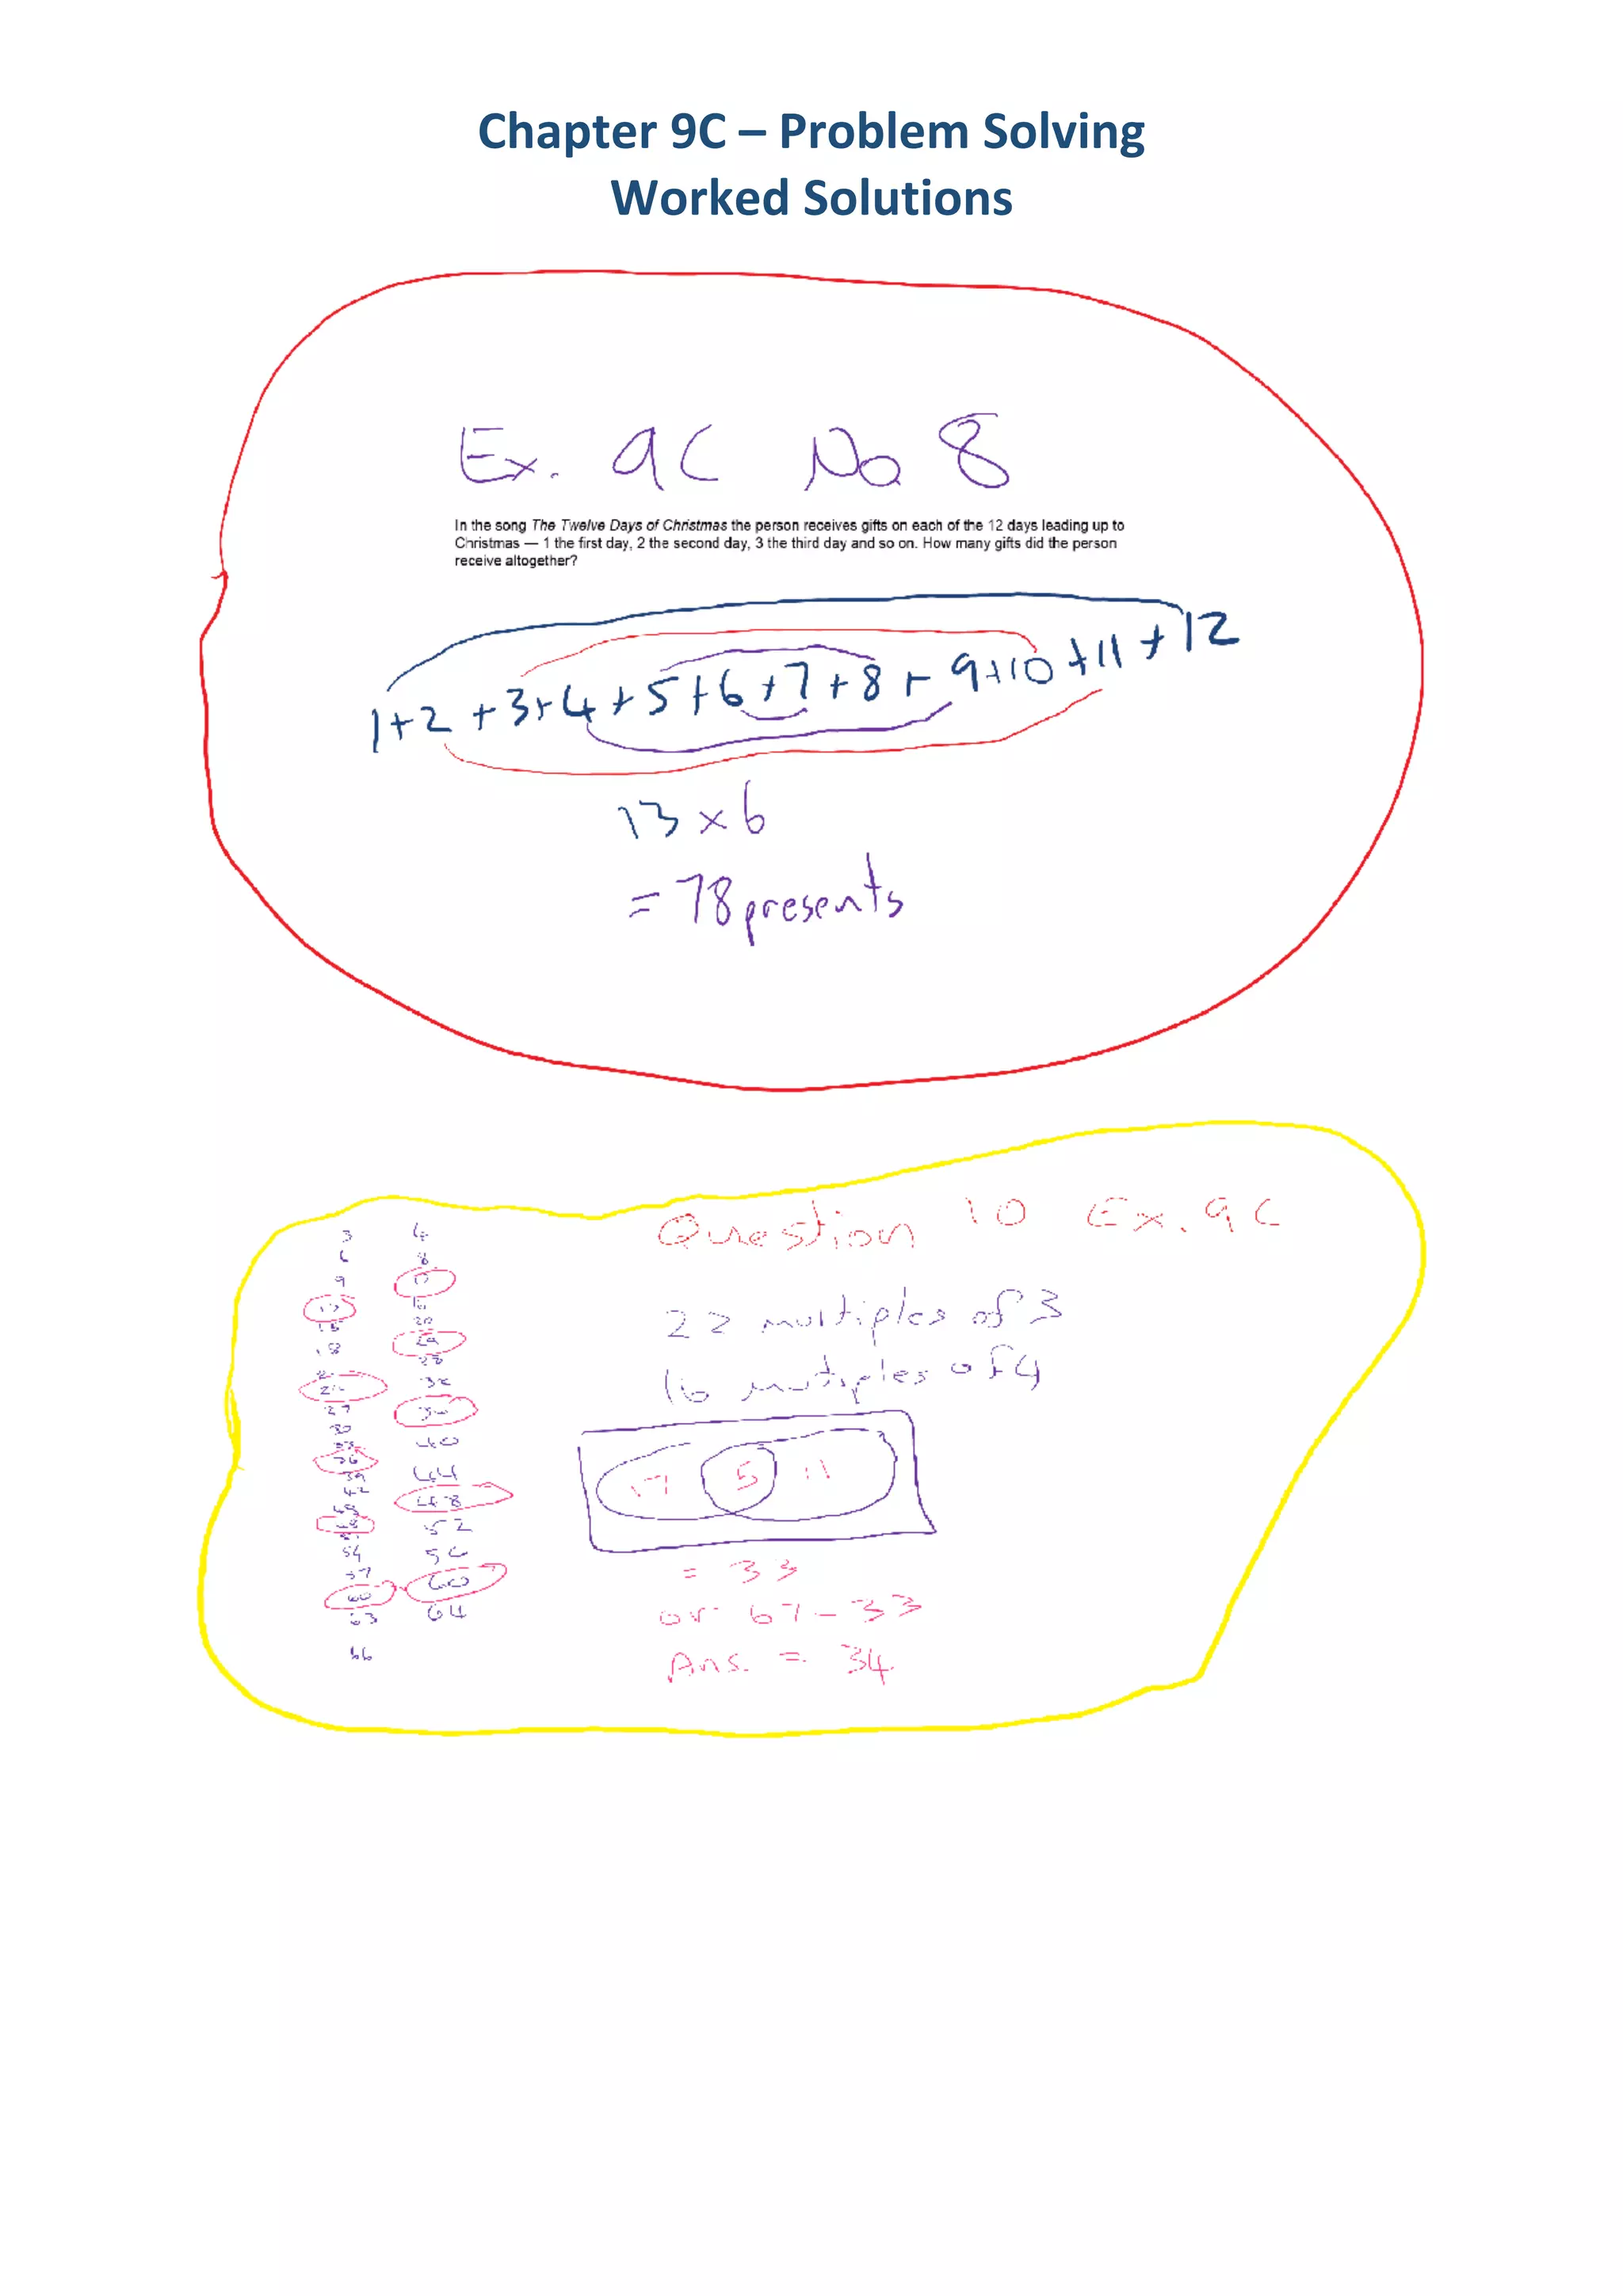 Chapter 9C – Problem Solving
Worked Solutions
Ex. 9C No 8
In the song The Twelve Days of Christmas the person receives gifts on each of the 12 days leading up to
Christmas — 1 the first day, 2 the second day, 3 the third day and so on. How many gifts did the person
receive altogether?
1+2+3+4+5+6+7+8+9+10+11+12
13×6
=78 presents
Question 10 Ex. 9C
3 4
6 8
9 12
12 16
15 20
18 24
21 28
24 32
27 36
30 40
33 44
36 48
39 52
42 56
45 60
48 64
51
54
57
60
63
66
22 multiples of 3
16 mutiples of 4
17 5 11
= 33
or 67-33
Ans. = 34